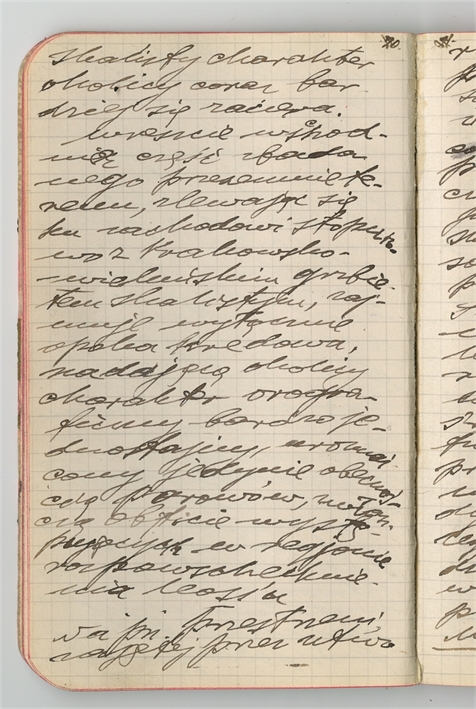 skalisty charakter
okolicy coraz bar-
dziej się zaciera.
Wreszcie wschod-
nią część zbada-
nego przezemnie te-
renu, zlewając się
ku zachodowi stopnio-
wo z krakowsko-
wieluńskim grzbie-
tem skalistym, zaj-
muje wyłącznie
opoka kredowa,
nadając okolicy
charakter orogra-
ficzny bardzo je-
dnostajny, urozmai-
cony jedynie obecnoś-
cią parowów,
obficie wystę-
pujących w regjonie
rozpowszechnie-
nia loess'u
Na przestrzeni
zajętej przez utwo